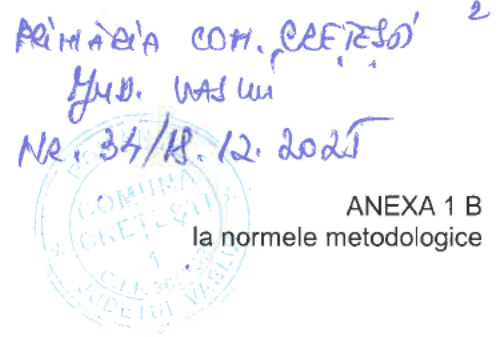 2
PRIMĂRIA COM. CREȚEȘTI
JUD. VASLUI
NR. 34/18.12.2025
COMUNA
CREȚEȘTI
1
JUDEȚUL VASLUI
ANEXA 1 B
la normele metodologice